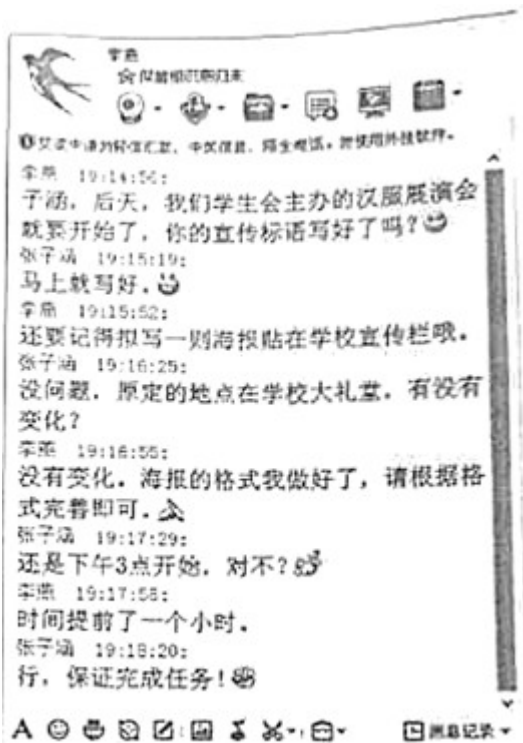 李燕
交谈中请勿轻信汇款、中奖信息、陌生电话。勿使用外挂软件。
李燕 19:14:56:
子涵，后天，我们学生会主办的汉服展演会
就要开始了，你的宣传标语写好了吗？
张子涵 19:15:19:
马上就写好．
李燕 19:15:52:
还要记得拟写一则海报贴在学校宣传栏哦．
张子涵 19:16:25:
没问题．原定的地点在学校大礼堂．有没有
变化？
李燕 19:16:55:
没有变化．海报的格式我做好了，请根据格
式完善即可．
张子涵 19:17:29:
还是下午3点开始．对不？
李燕 19:17:58:
时间提前了一个小时．
张子涵 19:18:20:
行，保证完成任务！
A 消息记录